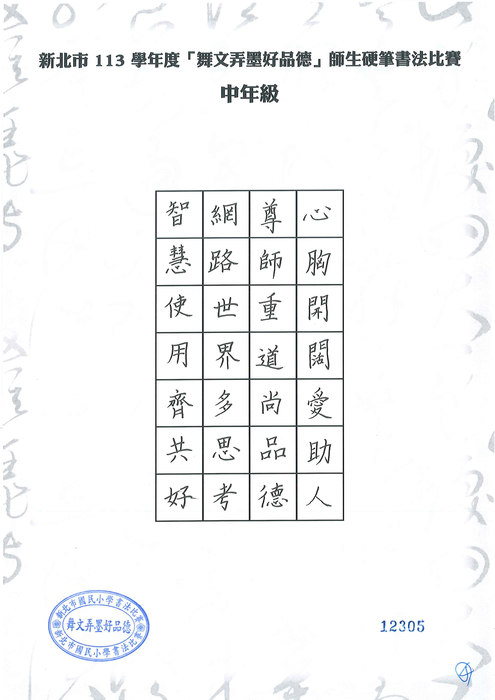 新北市 113 學年度「舞文弄墨好品德」師生硬筆書法比賽
中年級
心胸開闊愛助人
尊師重道尚品德
網路世界多思考
智慧使用齊共好
新北市國民小學書法比賽
舞文弄墨好品德
新北市國民小學書法比賽
12305